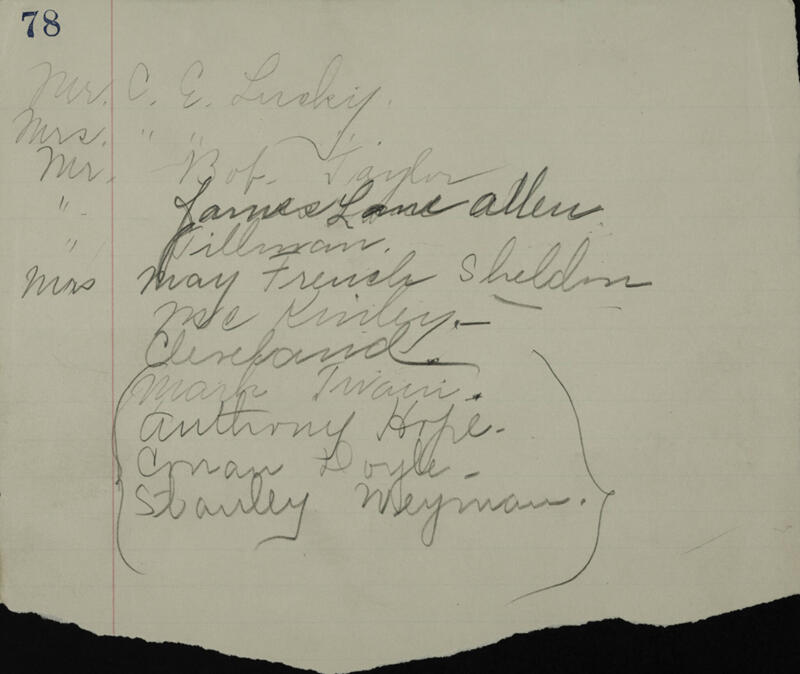 78
Mr. C. E. Lucky.
Mrs. " " "
Mr. Bob. Taylor
" James Lane allen.
" Tillman.
Mrs May French Sheldon
Mc Kinley.—
Cleveland.
Mark Twain.
Anthony Hope-
Conan Doyle-
Stanley Weyman.